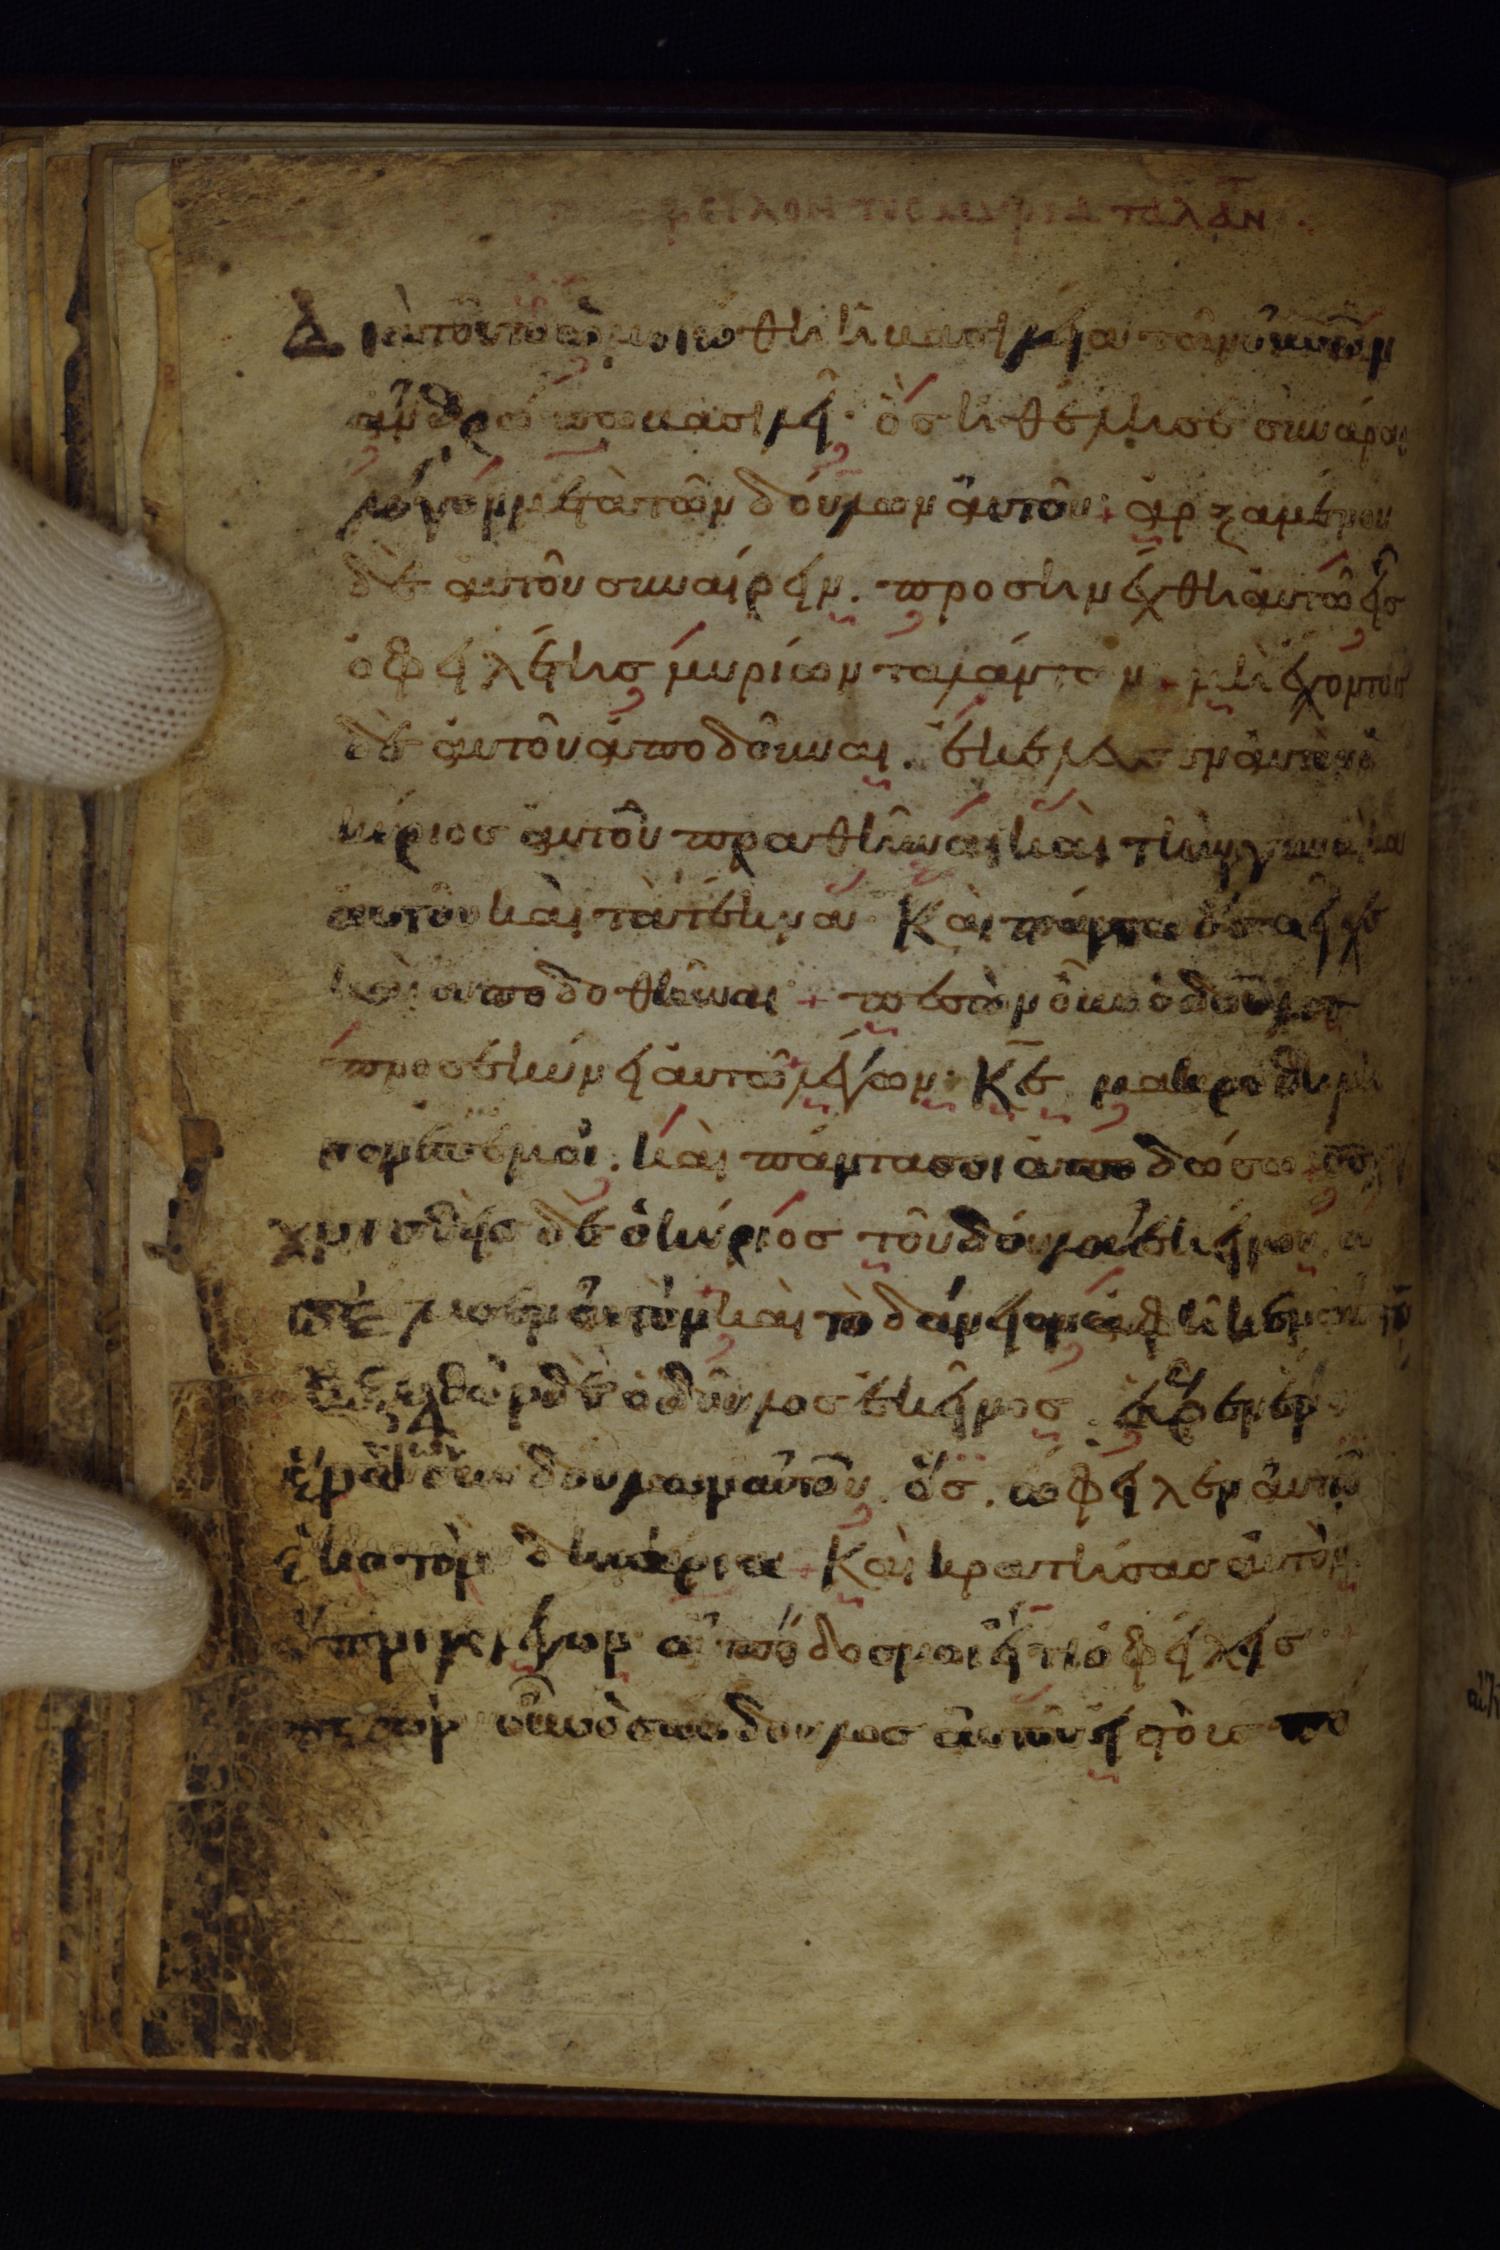 φειλον τος μυρια ταλαν
Διὰ τοῦτο ὁμοιώθη ἡ βασιλεία τῶν οὐνῶν
ἀνθρώπω βασιλεῖ· ὃς ἠθέλησε συνάραι
λόγον μετὰ τῶν δούλων αὐτοῦ + ἀρξαμένου
δὲ αὐτοῦ συναίρειν. προσηνέχθη αὐτῶ εἷς
ὀφειλέτης μυρίων ταλάντων + μὴ ἔχοντος
δὲ αὐτοῦ ἀποδοῦναι. ἐκέλευσεν αὐτὸν ὁ
κύριος αὐτοῦ πραθῆναι καὶ τὴν γυναῖκα
αὐτοῦ καὶ τὰ τέκνα Καὶ πάντα ὅσα εἶχε
καὶ ἀποδοθῆναι + πεσὼν οὖν ὁ δοῦλος
προσεκύνει αὐτῶ λέγων· Κε μακροθύμη
σον ἐπ ἐμοί. καὶ πάντα σοι ἀποδώσω +
χνισθεὶς δὲ ὁ κύριος τοῦ δούλου ἐκείνου ἀ
πέλυσεν αὐτὸν καὶ τὸ δάνειον ἀφῆκεν αὐτῶ
Ἐξελθὼν δὲ ὁ δοῦλος ἐκεῖνος. εὗρεν
ἕνα τῶν συνδούλων αὐτοῦ. ὃς. ὤφειλεν αὐτῶ
ἑκατὸν δηνάρια + Καὶ κρατήσας αὐτὸν
ἔπνιγε λέγων ἀπόδος μοι εἴ τι ὀφείλεις
πεσὼν οὖν ὁ σύνδουλος αὐτοῦ εἰς τοὺς πο